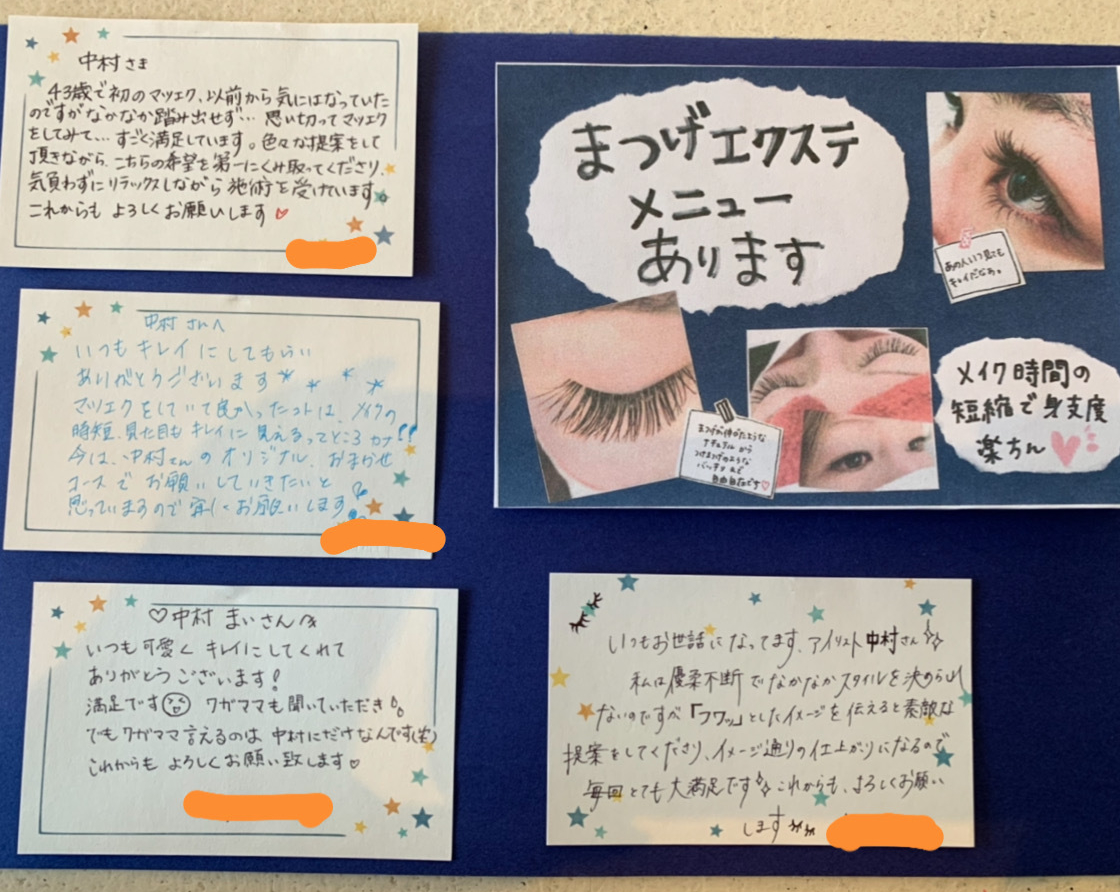 中村さま
43歳で初のマツエク、以前から気にはなっていた
のですがなかなか踏み出せず… 思い切ってマツエク
をしてみて… すごく満足しています。色々な提案をして
頂きながら、こちらの希望を第一にくみ取ってくださり、
気負わずにリラックスしながら施術を受けています。
これからも よろしくお願いします♡
中村さんへ
いつもキレイにしてもらい
ありがとうございます
マツエクをしていて良かったコトは、メイクの
時短、見た目もキレイに見えるってところカナ!!
今は、中村さんのオリジナル、おまかせ
コースでお願いしていきたいと
思っていますので宜しくお願いします!
♡中村 まいさんへ
いつも可愛く キレイにしてくれて
ありがとうございます!
満足です ワガママも聞いていただき
でもワガママ言えるのは 中村にだけなんです(笑)
これからも よろしくお願い致します♡
まつげエクステ
メニュー
あります
あの人いつ見ても
キレイだなぁ。
まつげが伸びたような
ナチュラルから
つけまつげのような
バッチリまで
自由自在です♡
メイク時間の
短縮で身支度
楽ちん♡
いつもお世話になってます、アイリスト中村さん
私は優柔不断でなかなかスタイルを決められ
ないのですが「フワッ」としたイメージを伝えると素敵な
提案をしてくださり、イメージ通りの仕上がりになるので
毎回とても大満足です これからも、よろしくお願い
します